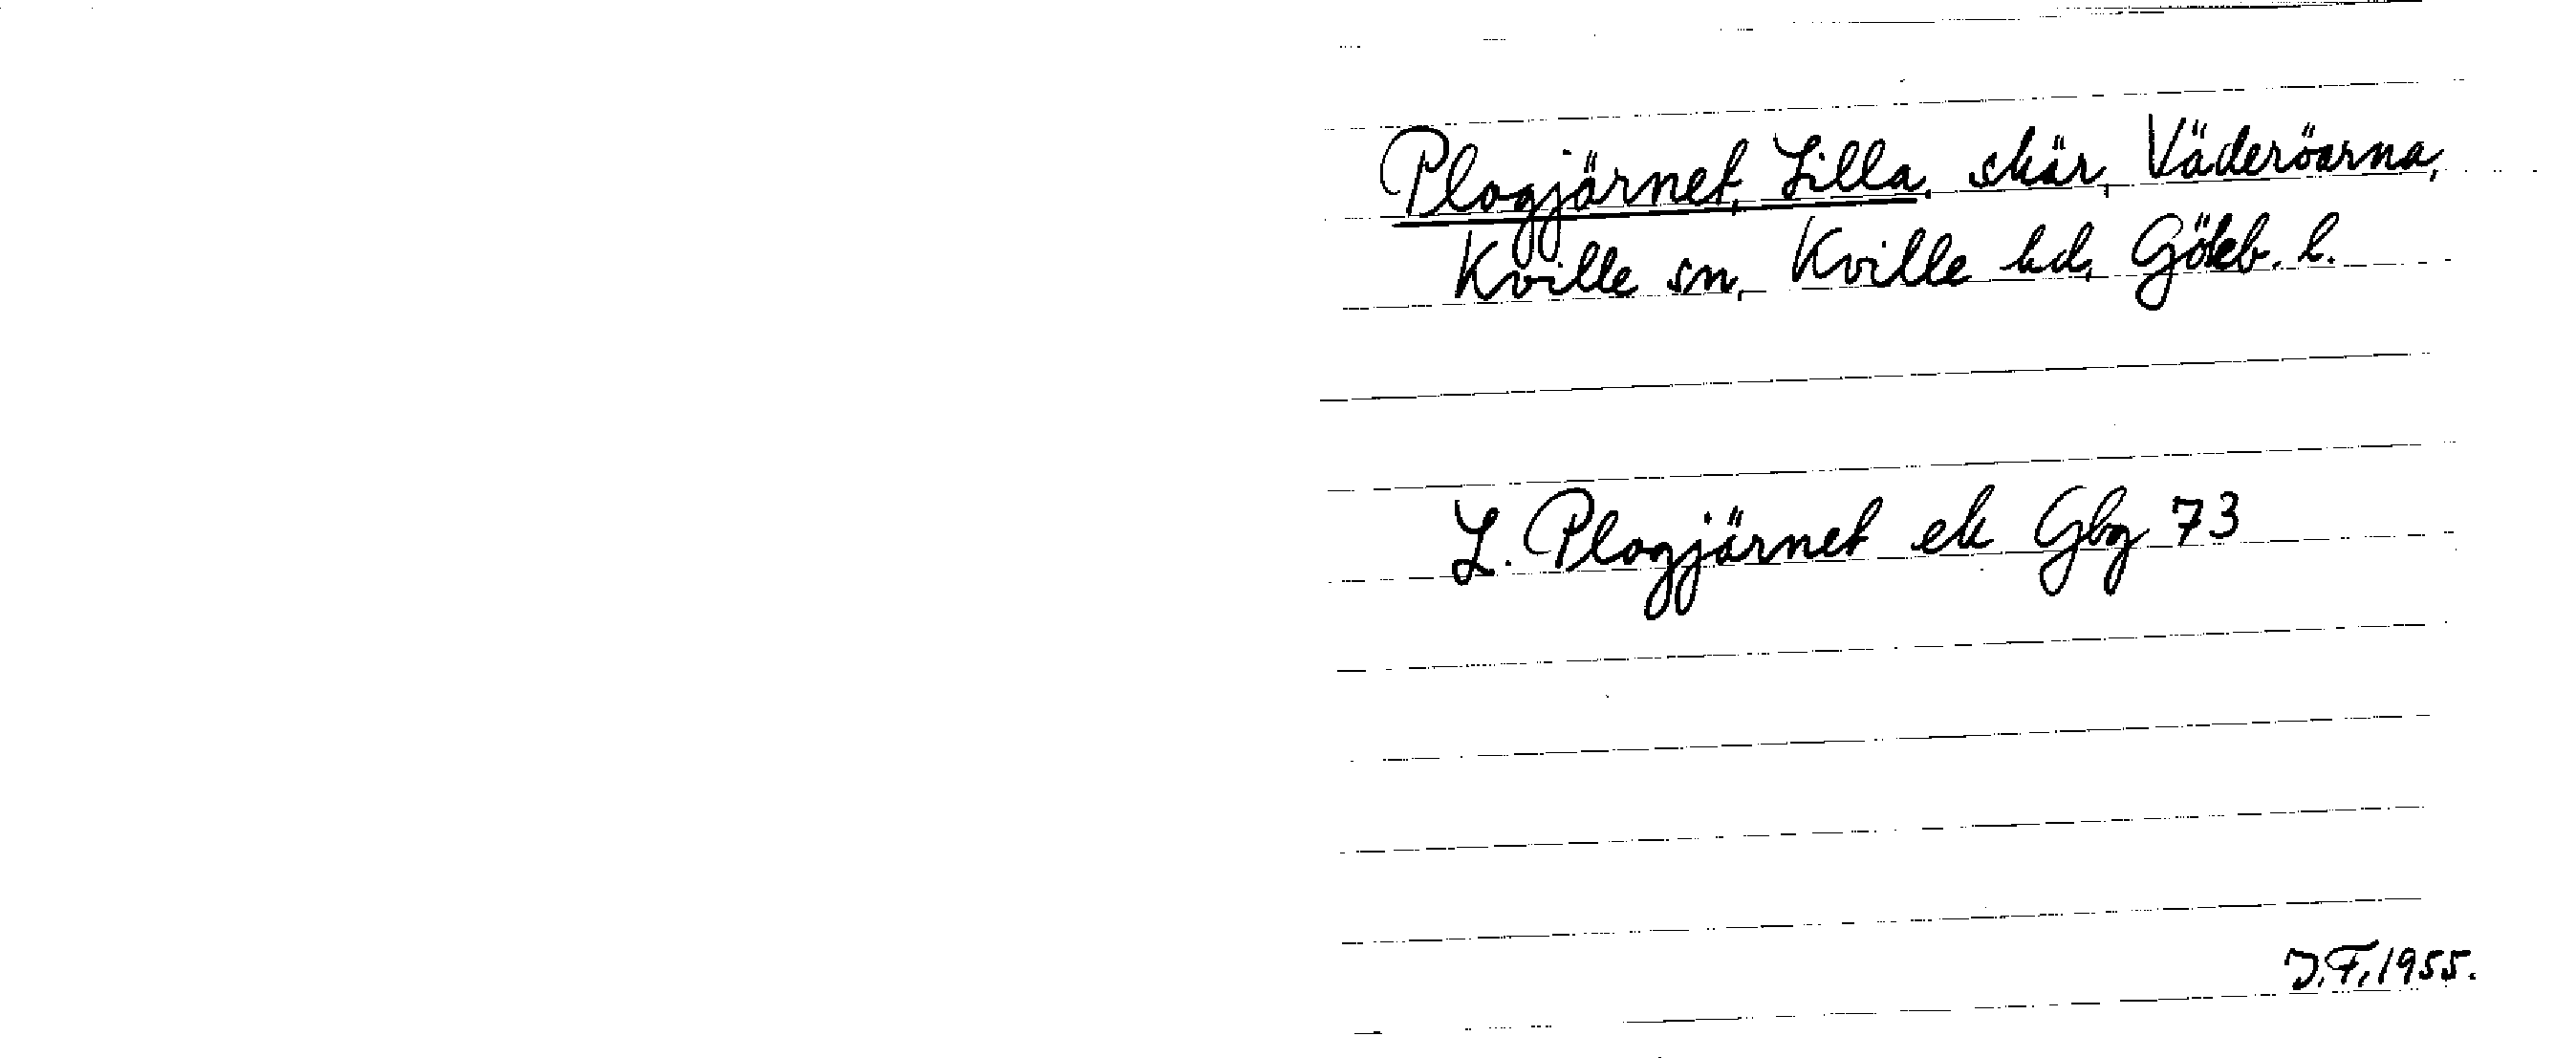 Plogjärnet, Lilla, skär, Väderöarna,
Kville sn, Kville hd, Göteb. l.
L. Plogjärnet ek Gbg 73
J.F. 1955.